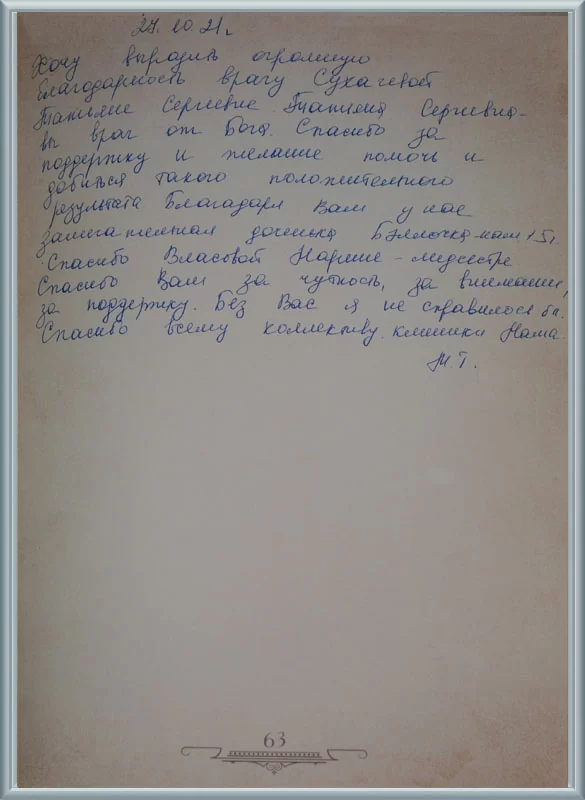 27.10.21г.
Хочу выразить огромную
благодарность врачу Сухачевой
Татьяне Сергеевне. Татьяна Сергеевна -
вы врач от Бога. Спасибо за
поддержку и желание помочь и
добиться такого положительного
результата Благодаря Вам у нас
замечательная доченька Бэллочка - нам 1,5г.
Спасибо Власовой Нарине - медсестре
Спасибо Вам за чуткость, за внимание,
за поддержку. Без Вас я не справилась бы.
Спасибо всему коллективу клиники Нама.
Ж.Т.
63